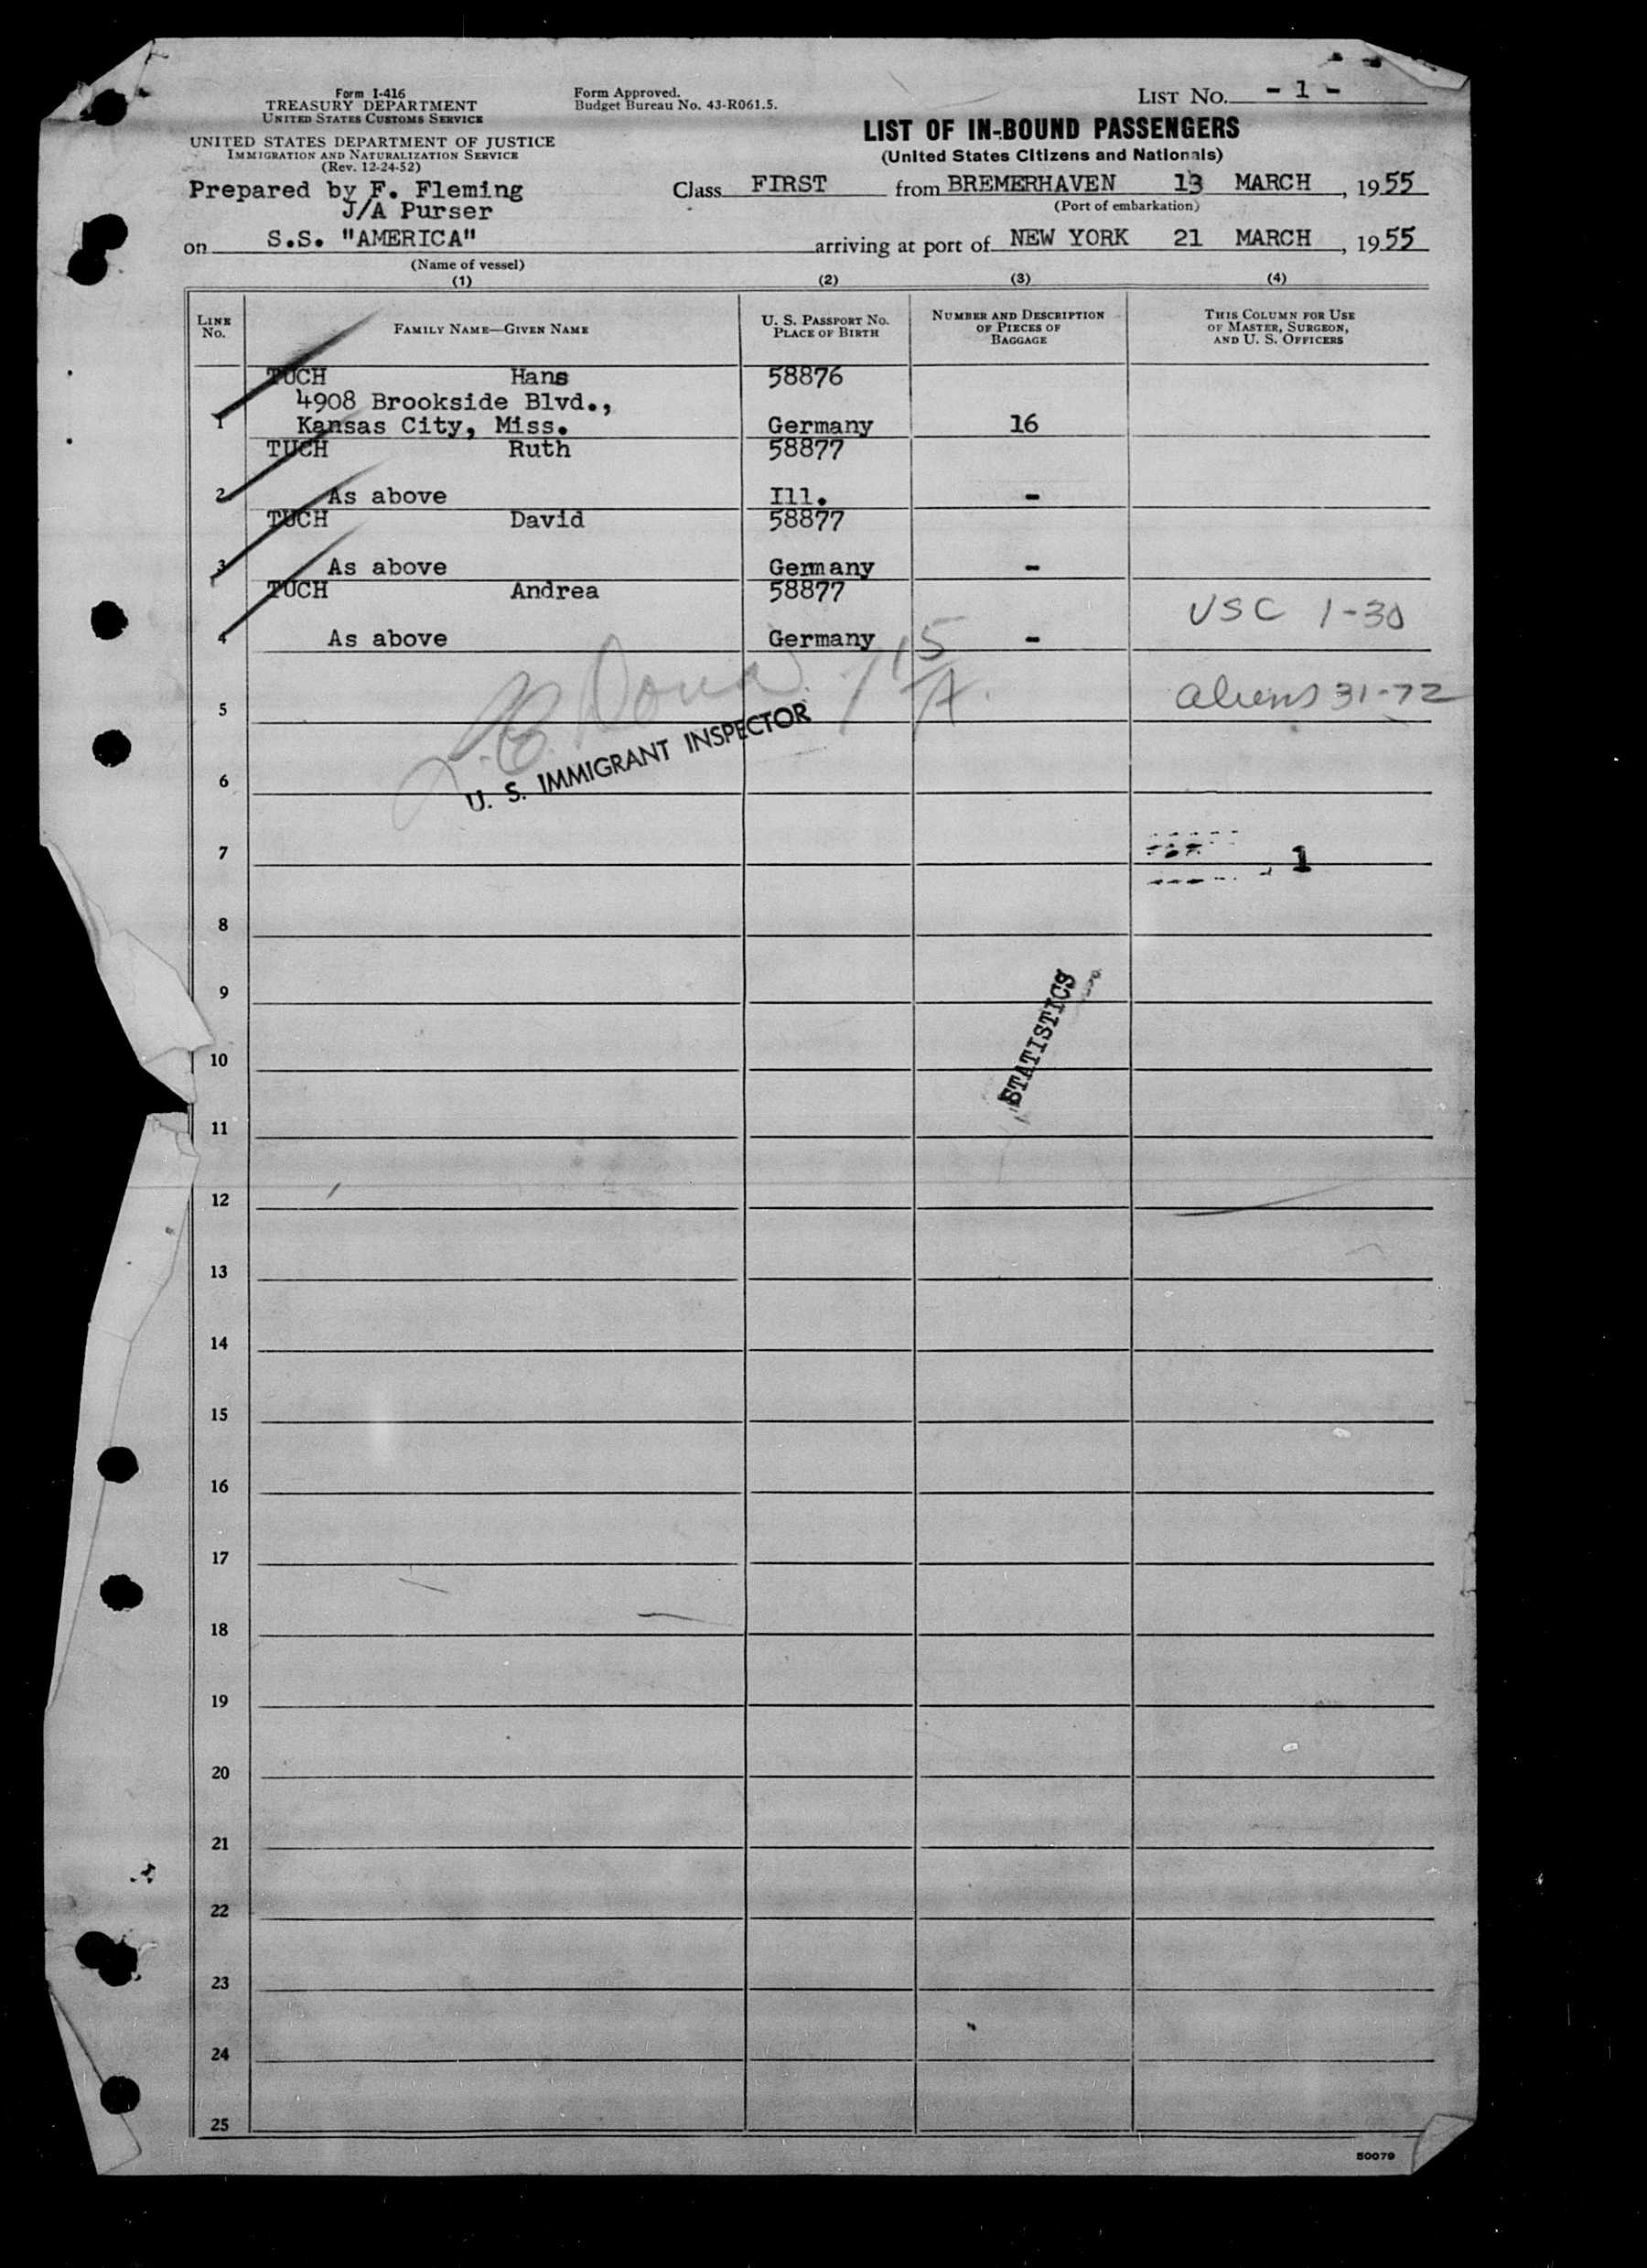 Form I-416
TREASURY DEPARTMENT
UNITED STATES CUSTOMS SERVICE
UNITED STATES DEPARTMENT OF JUSTICE
IMMIGRATION AND NATURALIZATION SERVICE
(Rev. 12-24-52)
Form Approved.
Budget Bureau No. 43-R061.5.
LIST NO. - 1 -
LIST OF IN-BOUND PASSENGERS
(United States Citizens and Nationals)
Prepared by F. Fleming
J/A Purser
Class FIRST from BREMERHAVEN 13 MARCH, 1955
(Port of embarkation)
on S.S. "AMERICA" arriving at port of NEW YORK 21 MARCH, 1955
(Name of vessel)
(1) (2) (3) (4)
LINE NO. FAMILY NAME—GIVEN NAME U. S. PASSPORT NO. PLACE OF BIRTH NUMBER AND DESCRIPTION OF PIECES OF BAGGAGE THIS COLUMN FOR USE OF MASTER, SURGEON, AND U. S. OFFICERS
TUCH Hans 58876
4908 Brookside Blvd.,
1 Kansas City, Miss. Germany 16
TUCH Ruth 58877
2 As above Ill. -
TUCH David 58877
3 As above Germany -
TUCH Andrea 58877
USC 1-30
4 As above Germany -
aliens 31-72
5
U. S. IMMIGRANT INSPECTOR
6
7 1
8
9
STATISTICS
10
11
12
13
14
15
16
17
18
19
20
21
22
23
24
25
50079